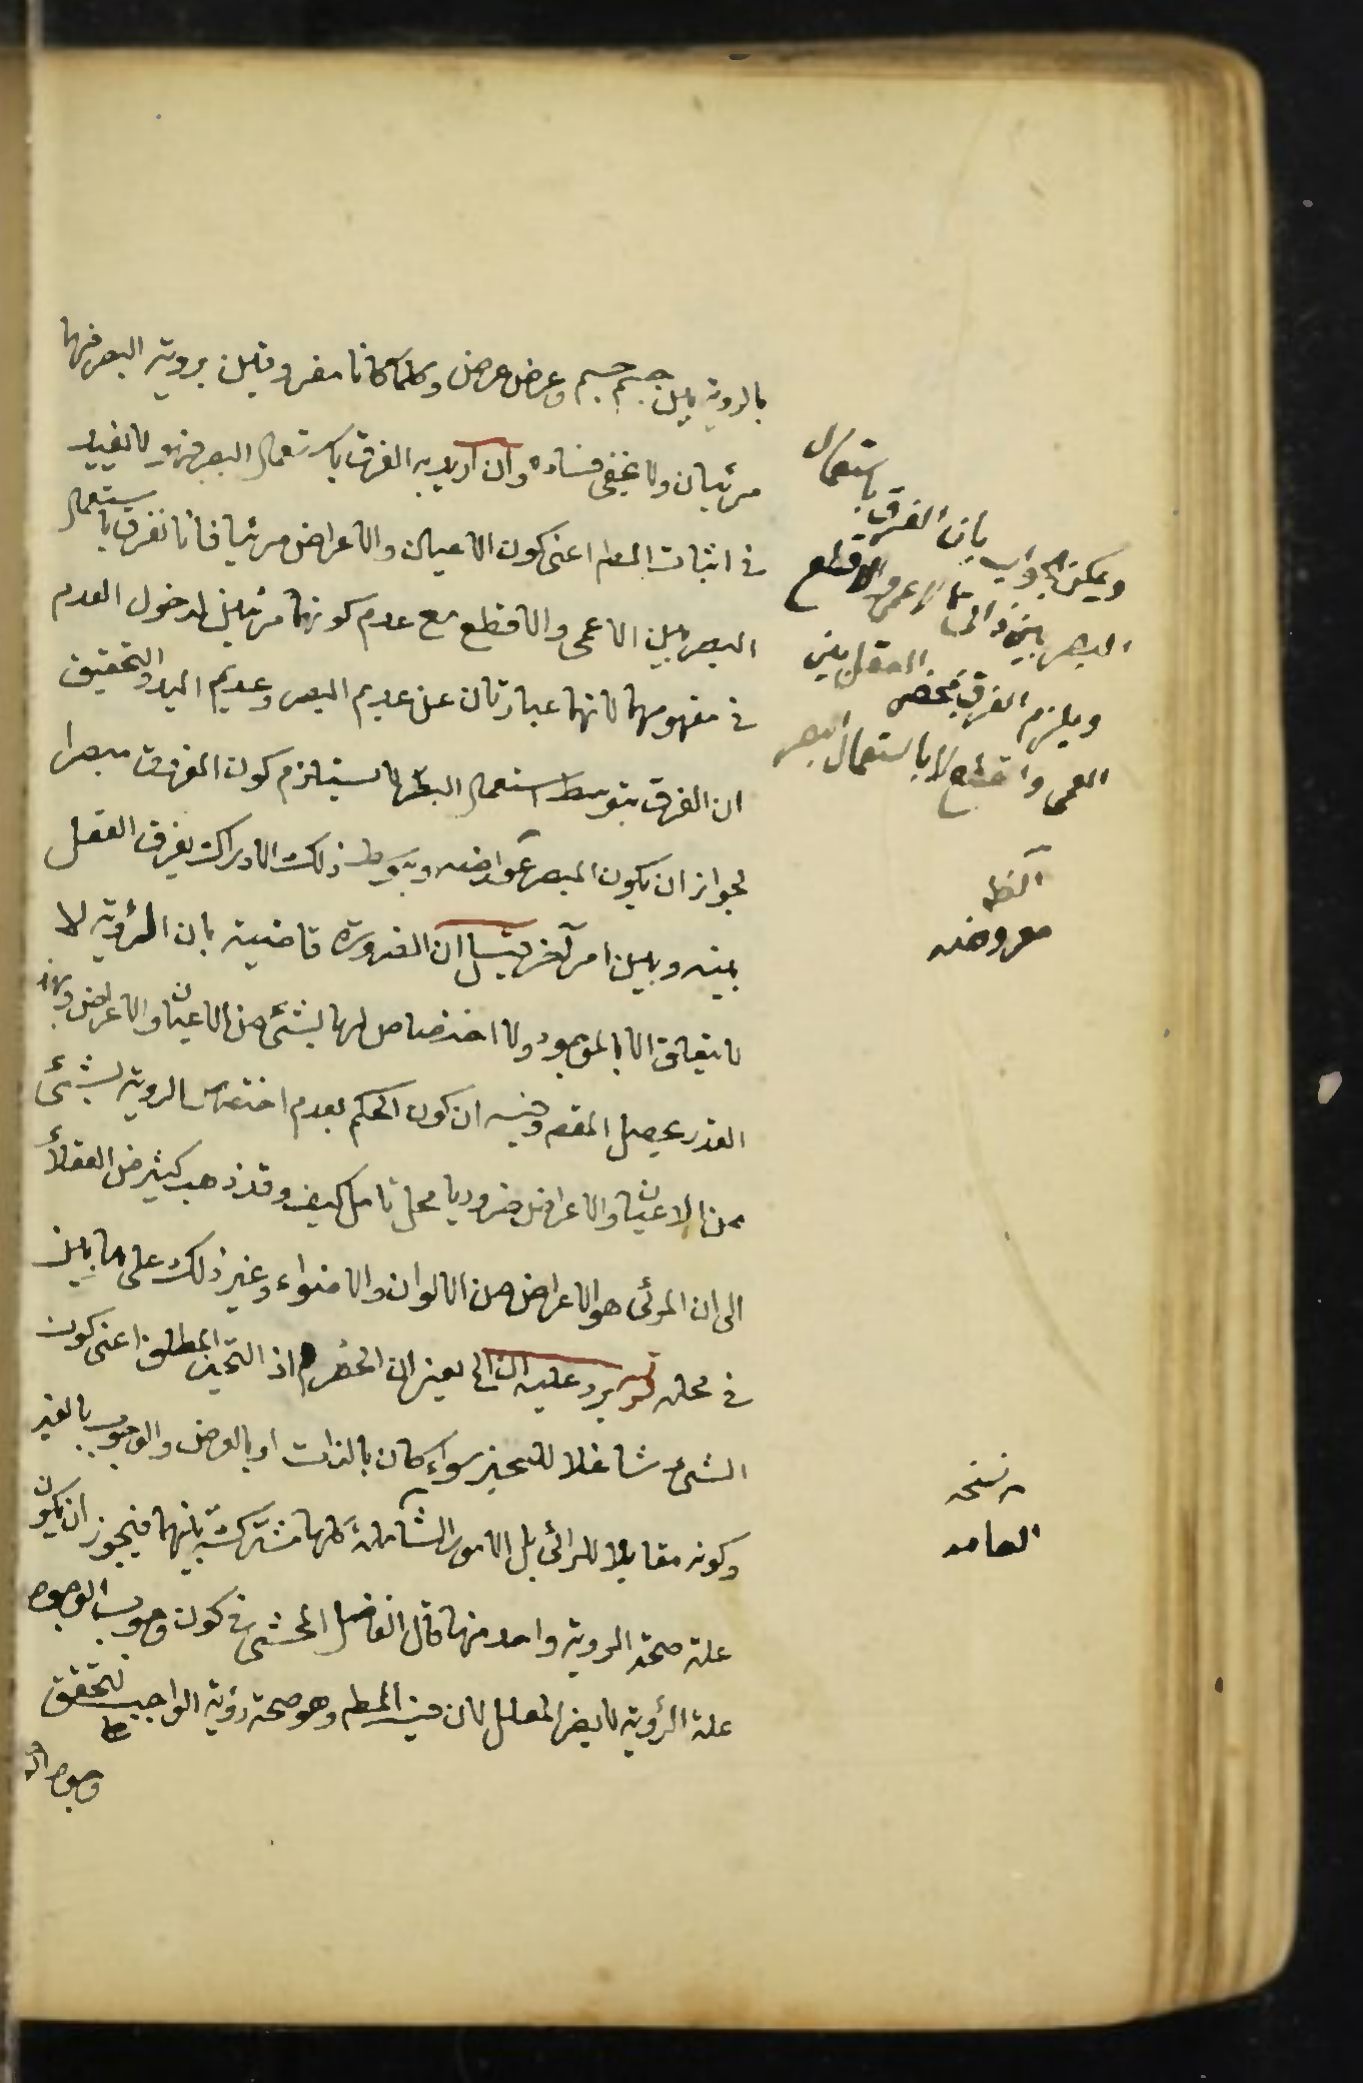 بالروية بين جسم جسم وعرض عرض وكلما كانا مفروقين بروية البصر فهما
مرئيان ولا يخفى فساده وان اريد به الفرق باستعمال البصر فهو لا يفيد
في اثبات المط اعنى كون الاعيان والاعراض مرئيا فانا نفرق باستعمال
البصر بين الاعمى والاقطع مع عدم كونهما مرئيين لدخول العدم
في مفهومهما لانهما عبارتان عن عديم البصر وعديم اليد والتحقيق
ان الفرق بتوسط استعمال البصر لا يستلزم كون المفروق مبصرا
لجواز ان يكون المبصر عوارضه وبتوسط ذلك الادراك يفرق العقل
بينه وبين امر آخر قيل ان الضرورة قاضية بان الرؤية لا
لا يتعلق الا بالموجود ولا اختصاص لها بشئ من الاعيان والاعراض وبهذا
القدر يحصل المقصود وفيه ان كون الحكم بعدم اختصاص الروية بشئ
من الاعيان والاعراض ضروريا محل تامل كيف وقد ذهب كثير من العقلاء
الى ان المرئى هو الاعراض من الالوان والاضواء وغير ذلك على ما بين
في محله قوله يرد عليه ان الخ يعنى ان الحصر م اذ التحيز المطلق اعنى كون
الشئ شاغلا للحيز سواء كان بالذات او بالعرض والوجوب بالغير
وكونه مقابلا للرائى بل الامور الشاملة كلها مشتركة بينهما فيجوز ان يكون
علة صحة الروية واحد منها قال الفاضل المحشى في كون وجوب الوجود
علة الرؤية لا يضر المعلل لان فيه المط وهو صحة رؤية الواجب لتحقق
وجوب
ويمكن الجواب بان الفرق باستعمال
البصر بين ذاتى الاعمى والاقطع
ويلزم الفرق العقل بين
العمى والقطع لا باستعمال البصر
معروضه
نسخه
العامه